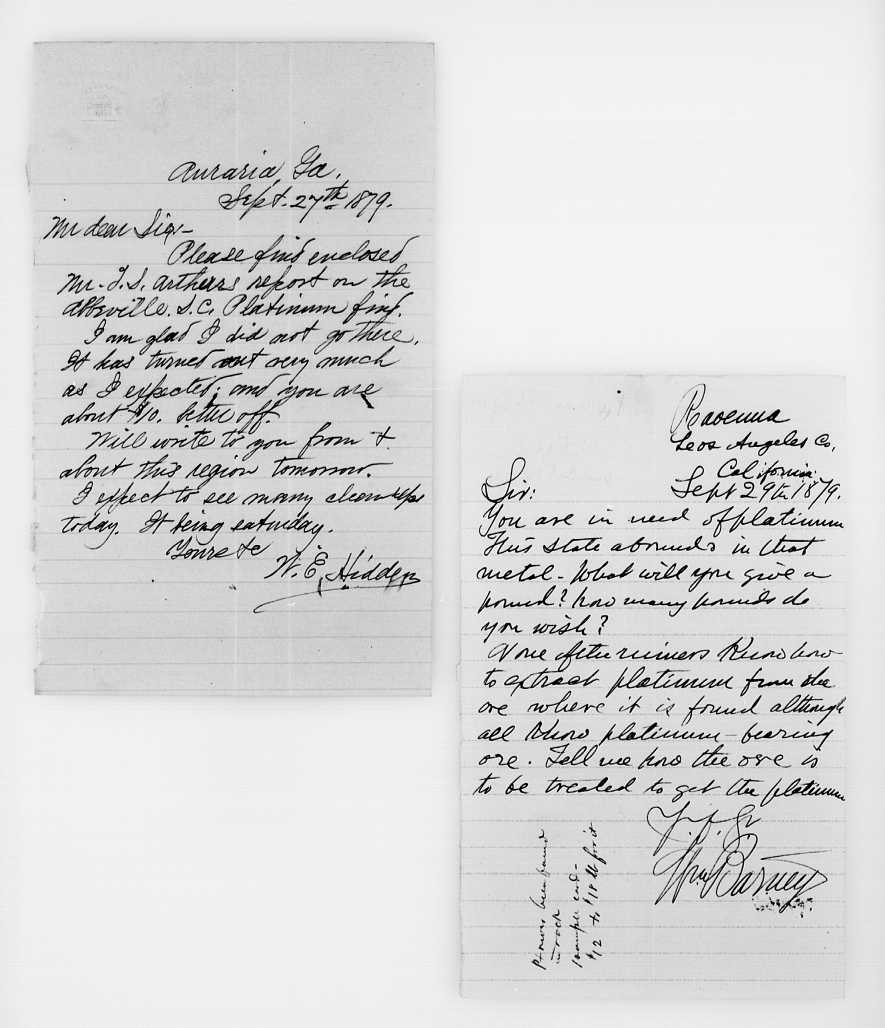 Auraria, Ga.
Sept. 27th 1879.
My dear Sir:-
Please find enclosed
Mr. T. S. Arthurs report on the
Abbeville. S.C. Platinum find.
I am glad I did not go there.
It has turned out very much
as I expected; and you are
about $10. better off.
Will write to you from &
about this region tomorrow.
I expect to see many clean ups
today. It being saturday.
Yours &c
W. E. Hidden
Ravenna
Leos Angeles Co.
California.
Sept 29th 1879.
Sir:
You are in need of platinum
This state abounds in that
metal - What will you give a
pound? how many pounds do
you wish?
None of the miners Know how
to extract platinum from the
ore where it is found although
all Know platinum-bearing
ore. Tell me how the ore is
to be treated to get the platinum
Wm Barney
Pt never been found
in rock
$12 to $18 lb for it